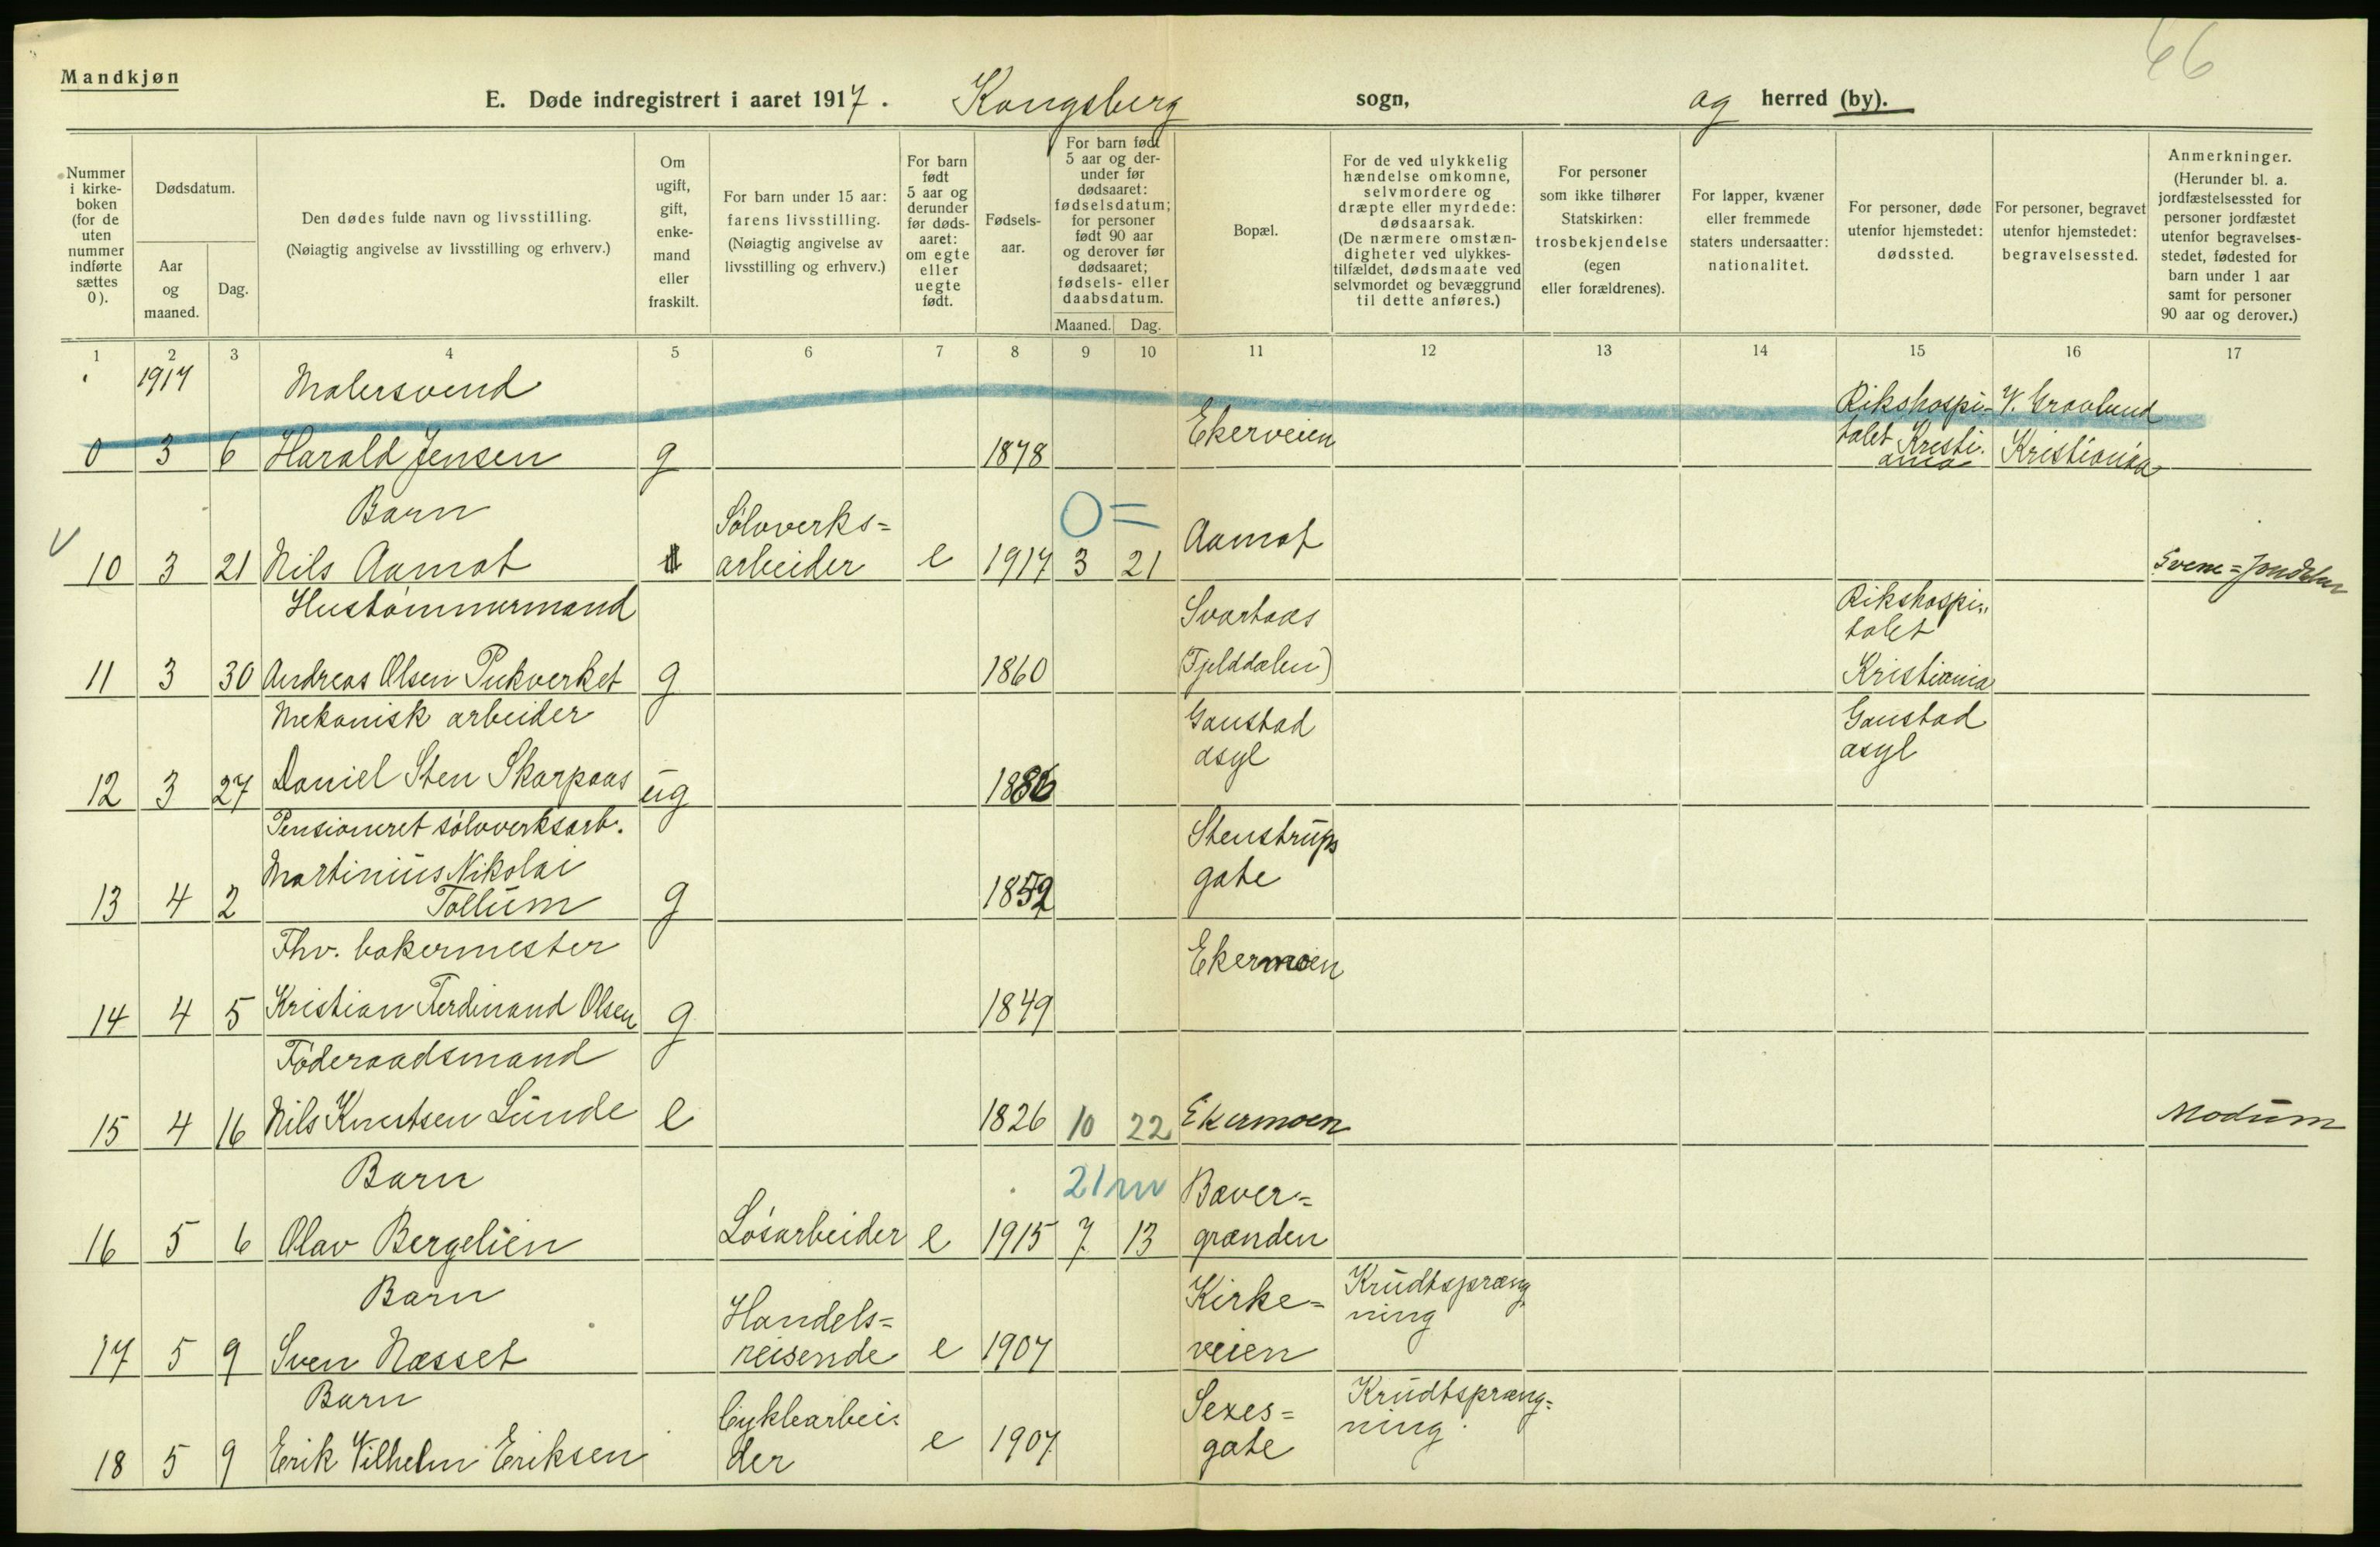 66
Mandkjøn
E. Døde indregistrert i aaret 1917. Kongsberg sogn, og herred (by).
Nummer i kirke- boken (for de uten nummer indførte sættes 0).
Dødsdatum.
Aar og maaned.
Dag.
Den dødes fulde navn og livsstilling.
(Nøiagtig angivelse av livsstilling og erhverv.)
Om ugift, gift, enke- mand eller fraskilt.
For barn under 15 aar: farens livsstilling.
(Nøiagtig angivelse av livsstilling og erhverv.)
For barn født 5 aar og derunder før døds- aaret: om egte eller uegte født.
Fødsels- aar.
For barn født 5 aar og der- under før dødsaaret: fødselsdatum; for personer født 90 aar og derover før dødsaaret; fødsels- eller daabsdatum.
Maaned. Dag.
Bopæl.
For de ved ulykkelig hændelse omkomne, selvmordere og dræpte eller myrdede: dødsaarsak.
(De nærmere omstæn- digheter ved ulykkes- tilfældet, dødsmaate ved selvmordet og bevæggrund til dette anføres.)
For personer som ikke tilhører Statskirken: trosbekjendelse (egen eller forældrenes).
For lapper, kvæner eller fremmede staters undersaatter: nationalitet.
For personer, døde utenfor hjemstedet: dødssted.
For personer, begravet utenfor hjemstedet: begravelsessted.
Anmerkninger.
(Herunder bl. a. jordfæstelsessted for personer jordfæstet utenfor begravelses- stedet, fødested for barn under 1 aar samt for personer 90 aar og derover.)
1 2 3 4 5 6 7 8 9 10 11 12 13 14 15 16 17
1917 Malersvend Rikshospi- V. Gravlund
0 3 6 Harald Jensen g 1878 Ekerveien talet Kristi- ania Kristiania
Barn Sølvverks= 0=
10 3 21 Nils Aamot arbeider e 1917 3 21 Aamot Svene=Jondalen
Hustømmermand Svartaas Rikshospi- talet
11 3 30 Andreas Olsen Pukverket g 1860 (Fjelddalen) Kristiania
Mekanisk arbeider Gaustad Gaustad
12 3 27 Daniel Sten Skarpaas ug 1886 asyl asyl
Pensioneret sølvverksarb. Stenstrups
Martinius Nikolai
13 4 2 Tollum g 1852 gate
Fhv. bakermester Ekermoen
14 4 5 Kristian Ferdinand Olsen g 1849
Føderaadsmand
15 4 16 Nils Knutsen Lunde e 1826 10 22 Ekermoen Modum
Barn 21 m Bæver=
16 5 6 Olav Bergelien Løsarbeider e 1915 7 13 grænden
Barn Handels= Kirke= Krudtspræng
17 5 9 Sven Næsset reisende e 1907 veien ning
Barn Cyklearbei- Sexes= Krudtspræng=
18 5 9 Erik Vilhelm Eriksen der e 1907 gate ning